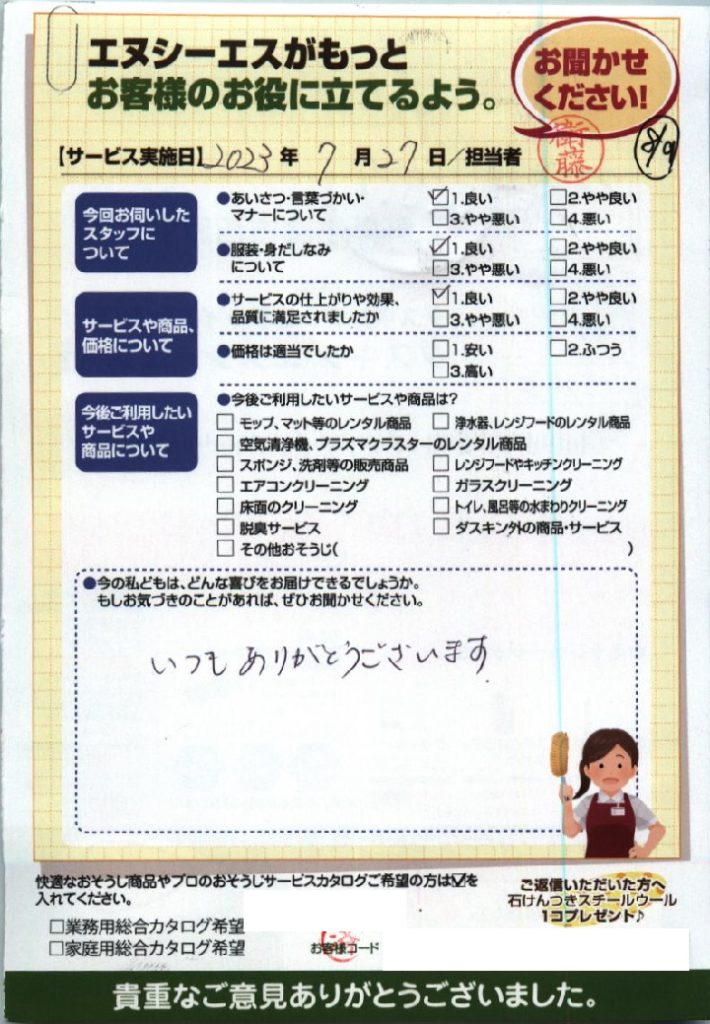 エヌシーエスがもっと
お客様のお役に立てるよう。
お聞かせ
ください!
【サービス実施日】2023年 7月27日/担当者
衛藤
8/9
今回お伺いした
スタッフに
ついて
●あいさつ・言葉づかい・
マナーについて
☑1.良い □2.やや良い
□3.やや悪い □4.悪い
●服装・身だしなみ
について
☑1.良い □2.やや良い
□3.やや悪い □4.悪い
サービスや商品、
価格について
●サービスの仕上がりや効果、
品質に満足されましたか
☑1.良い □2.やや良い
□3.やや悪い □4.悪い
●価格は適当でしたか
□1.安い □2.ふつう
□3.高い
今後ご利用したい
サービスや
商品について
●今後ご利用したいサービスや商品は?
□ モップ、マット等のレンタル商品 □ 浄水器、レンジフードのレンタル商品
□ 空気清浄機、プラズマクラスターのレンタル商品
□ スポンジ、洗剤等の販売商品 □ レンジフードやキッチンクリーニング
□ エアコンクリーニング □ ガラスクリーニング
□ 床面のクリーニング □ トイレ、風呂等の水まわりクリーニング
□ 脱臭サービス □ ダスキン外の商品・サービス
□ その他おそうじ( )
●今の私どもは、どんな喜びをお届けできるでしょうか。
もしお気づきのことがあれば、ぜひお聞かせください。
いつもありがとうございます
快適なおそうじ商品やプロのおそうじサービスカタログご希望の方は☑を
入れてください。
□業務用総合カタログ希望
□家庭用総合カタログ希望
お客様コード
ご返信いただいた方へ
石けんつきスチールウール
1コプレゼント♪
貴重なご意見ありがとうございました。